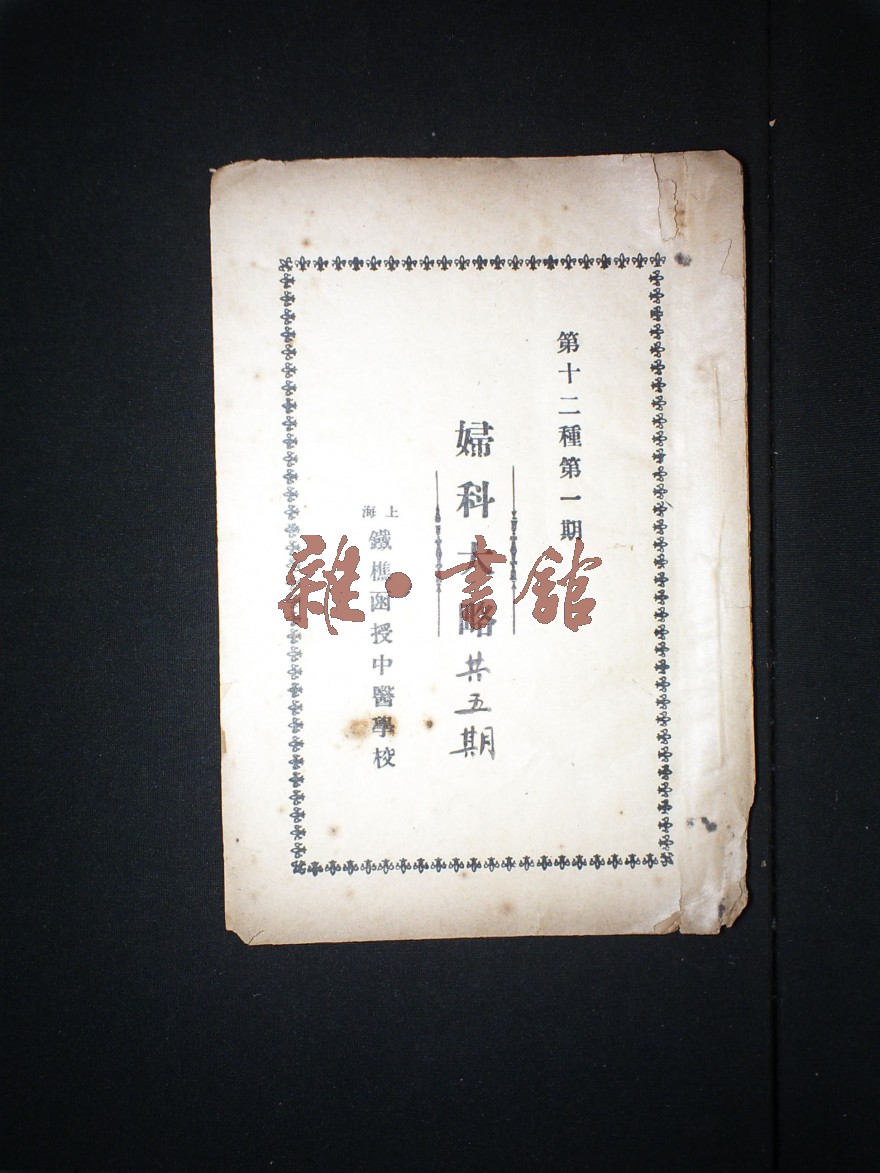 第十二種第一期
婦科大略共五期
上海
鐵樵函授中醫學校
雜·書館